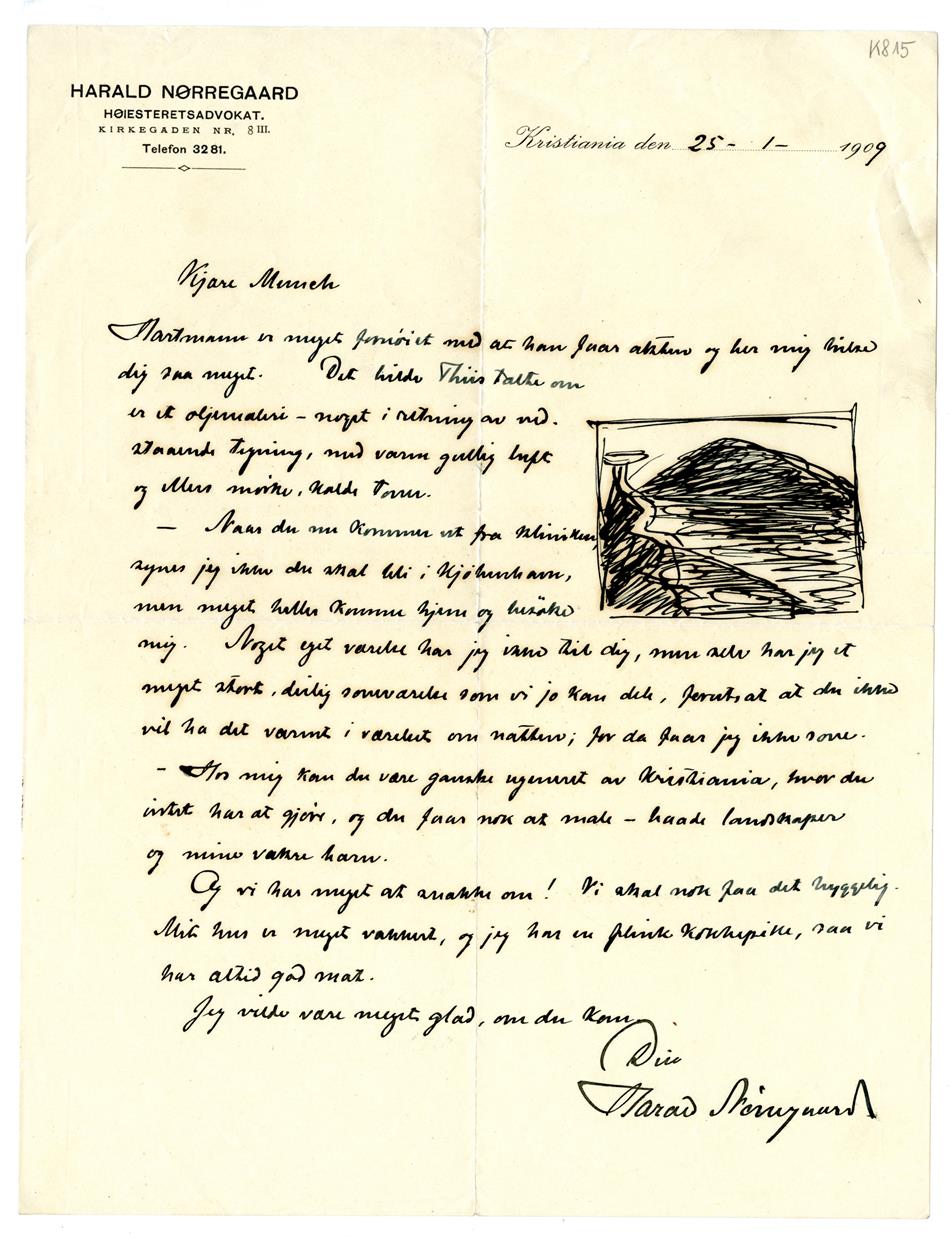 K815
HARALD NØRREGAARD
HØIESTERETSADVOKAT.
KIRKEGADEN NR. 8 III.
Telefon 3281.
Kristiania den 25 - 1 - 1909
Kjære Munch
Hartmann er meget fornøiet med at han faar akten og ber mig hilse
dig saa meget. Det bilde Thiis talte om
er et oljemaleri – noget i retning av ved-
staaende tegning, med varm gullig luft
og ellers mørke, kolde toner.
— Naar du nu kommer ut fra kliniken,
synes jeg ikke du skal bli i Kjøbenhavn,
men meget heller komme hjem og besøke
mig. Noget eget værelse har jeg ikke til dig, men selv har jeg et
meget stort, deilig soveværelse som vi jo kan dele, forutsat at du ikke
vil ha det varmt i værelset om natten; for da faar jeg ikke sove.
– Hos mig kan du være ganske ugeneret av Kristiania, hvor du
intet har at gjøre, og du faar nok at male – baade landskaper
og mine vakre barn.
Og vi har meget at snakke om! Vi skal nok faa det hyggelig.
Mit hus er meget vakkert, og jeg har en flink kokkepike, saa vi
har altid god mat.
Jeg vilde være meget glad, om du kom
Din
Harald Nørregaard